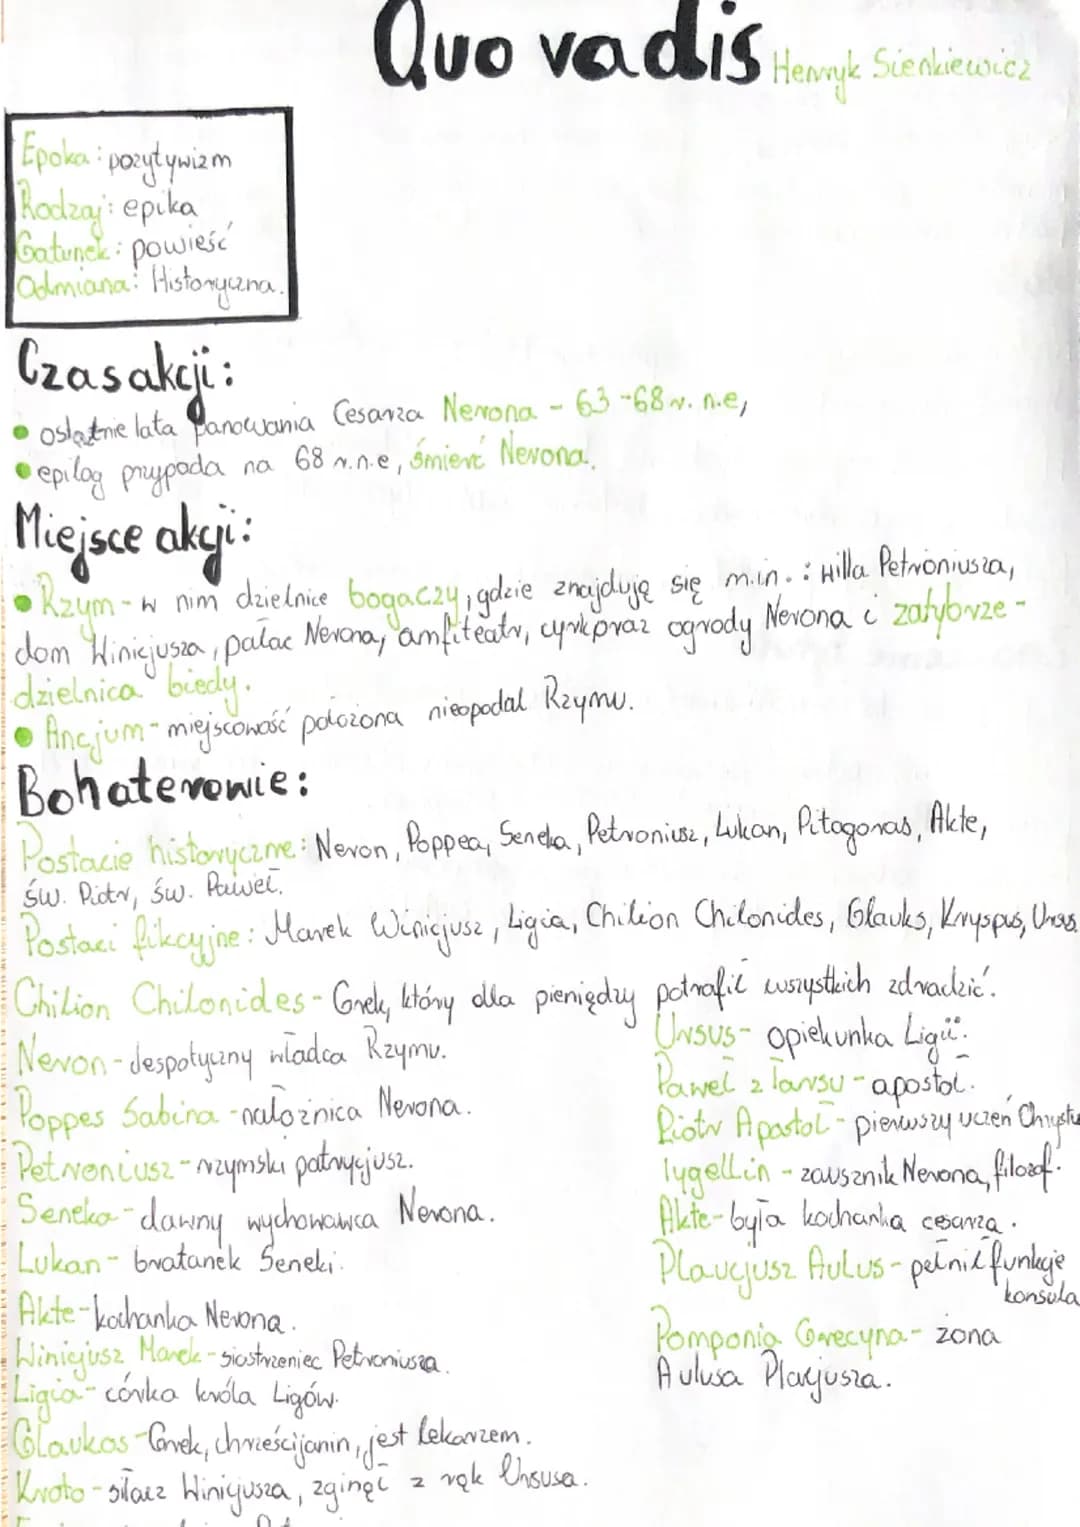 Quo vadis Henryk Sienkiewicz
Epoka: pozytywizm
Rodzaj: epika
Gatunek: powieść
Odmiana: Historyczna.
Czas akcji:
• ostatnie lata panowania Cesarza Nerona - 63-68 r. n.e,
• epilog przypada na 68 r.n.e, śmierć Nerona.
Miejsce akcji:
• Rzym - w nim dzielnice bogaczy, gdzie znajdują się m.in. : willa Petroniusza,
dom Winicjusza, pałac Nerona, amfiteatr, cyrk oraz ogrody Nerona i zatybrze -
dzielnica biedy.
• Ancjum - miejscowość położona nieopodal Rzymu.
Bohaterowie:
Postacie historyczne: Neron, Poppea, Seneka, Petroniusz, Lukan, Pitagoras, Akte,
św. Piotr, św. Paweł.
Postaci fikcyjne: Marek Winicjusz, Ligia, Chilion Chilonides, Glauks, Kryspus, Ursus
Chilion Chilonides - Grek, który dla pieniędzy potrafił wszystkich zdradzić.
Neron - despotyczny władca Rzymu.
Poppes Sabina - nałożnica Nerona.
Petroniusz - rzymski patrycjusz.
Seneka - dawny wychowawca Nerona.
Lukan - bratanek Seneki.
Akte - kochanka Nerona.
Winicjusz Marek - siostrzeniec Petroniusza.
Ligia - córka króla Ligów.
Glaukos - Grek, chrześcijanin, jest lekarzem.
Kroto - siłacz Winicjusza, zginął z rąk Ursusa.
Ursus - opiekunka Ligii.
Paweł z Tarsu - apostoł.
Piotr Apostoł - pierwszy uczeń Chrystu
Tygellin - zausznik Nerona, filozof.
Akte - była kochanka cesarza.
Plaucjusz Aulus - pełnił funkcje
konsula
Pomponia Grecyna - żona
Aulusa Placjusza.